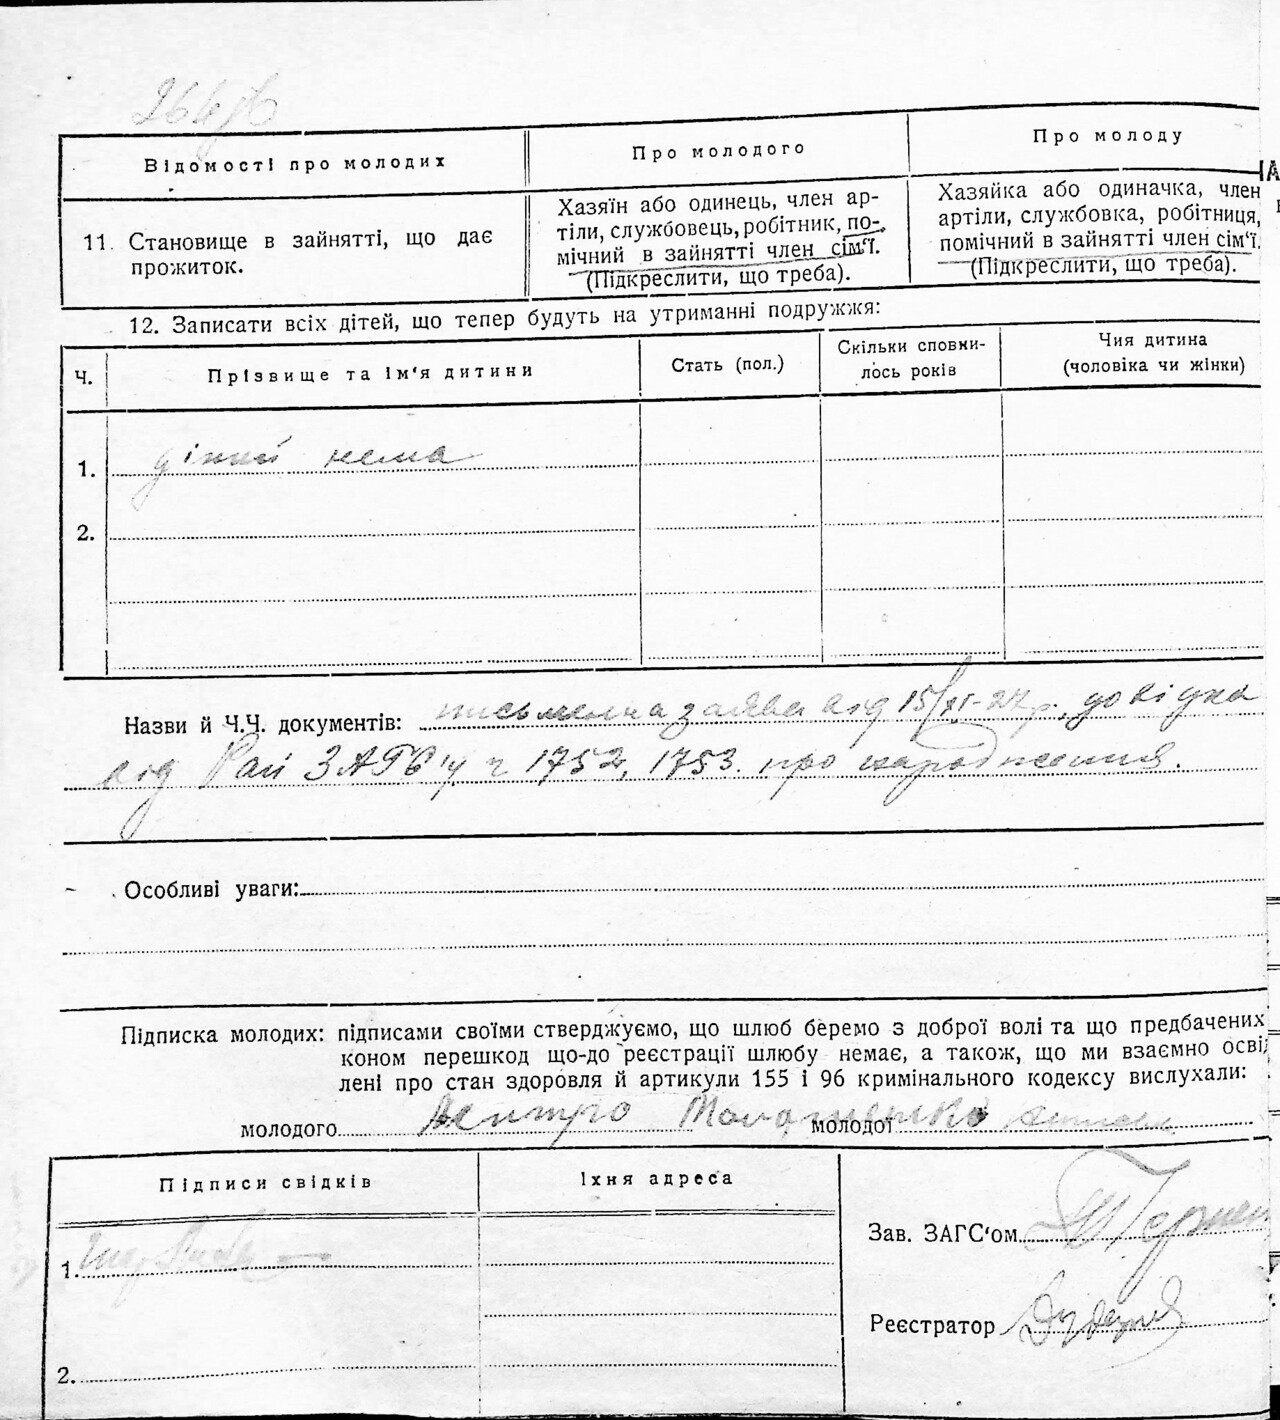 264
Відомості про молодих
Про молодого
Про молоду
11. Становище в зайнятті, що дає
прожиток.
Хазяїн або одинець, член ар-
тіли, службовець, робітник, по-
мічний в зайнятті член сім'ї.
(Підкреслити, що треба).
Хазяйка або одиначка, член
артіли, службовка, робітниця,
помічний в зайнятті член сім'ї.
(Підкреслити, що треба).
12. Записати всіх дітей, що тепер будуть на утриманні подружжя:
Ч.
Прізвище та ім'я дитини
Стать (пол.)
Скільки сповни-
лось років
Чия дитина
(чоловіка чи жінки)
1. дітей нема
2.
Назви й Ч.Ч. документів: письменна заява від 15/XI-27 р., довідка
від Рай ЗАГС'у ч 1752, 1753. про народження.
Особливі уваги:
Підписка молодих: підписами своїми стверджуємо, що шлюб беремо з доброї волі та що предбачених
коном перешкод що-до реєстрації шлюбу немає, а також, що ми взаємно осві
лені про стан здоровля й артикули 155 і 96 кримінального кодексу вислухали:
молодого молодої
Підписи свідків
Їхня адреса
1.
2.
Зав. ЗАГС'ом
Реєстратор